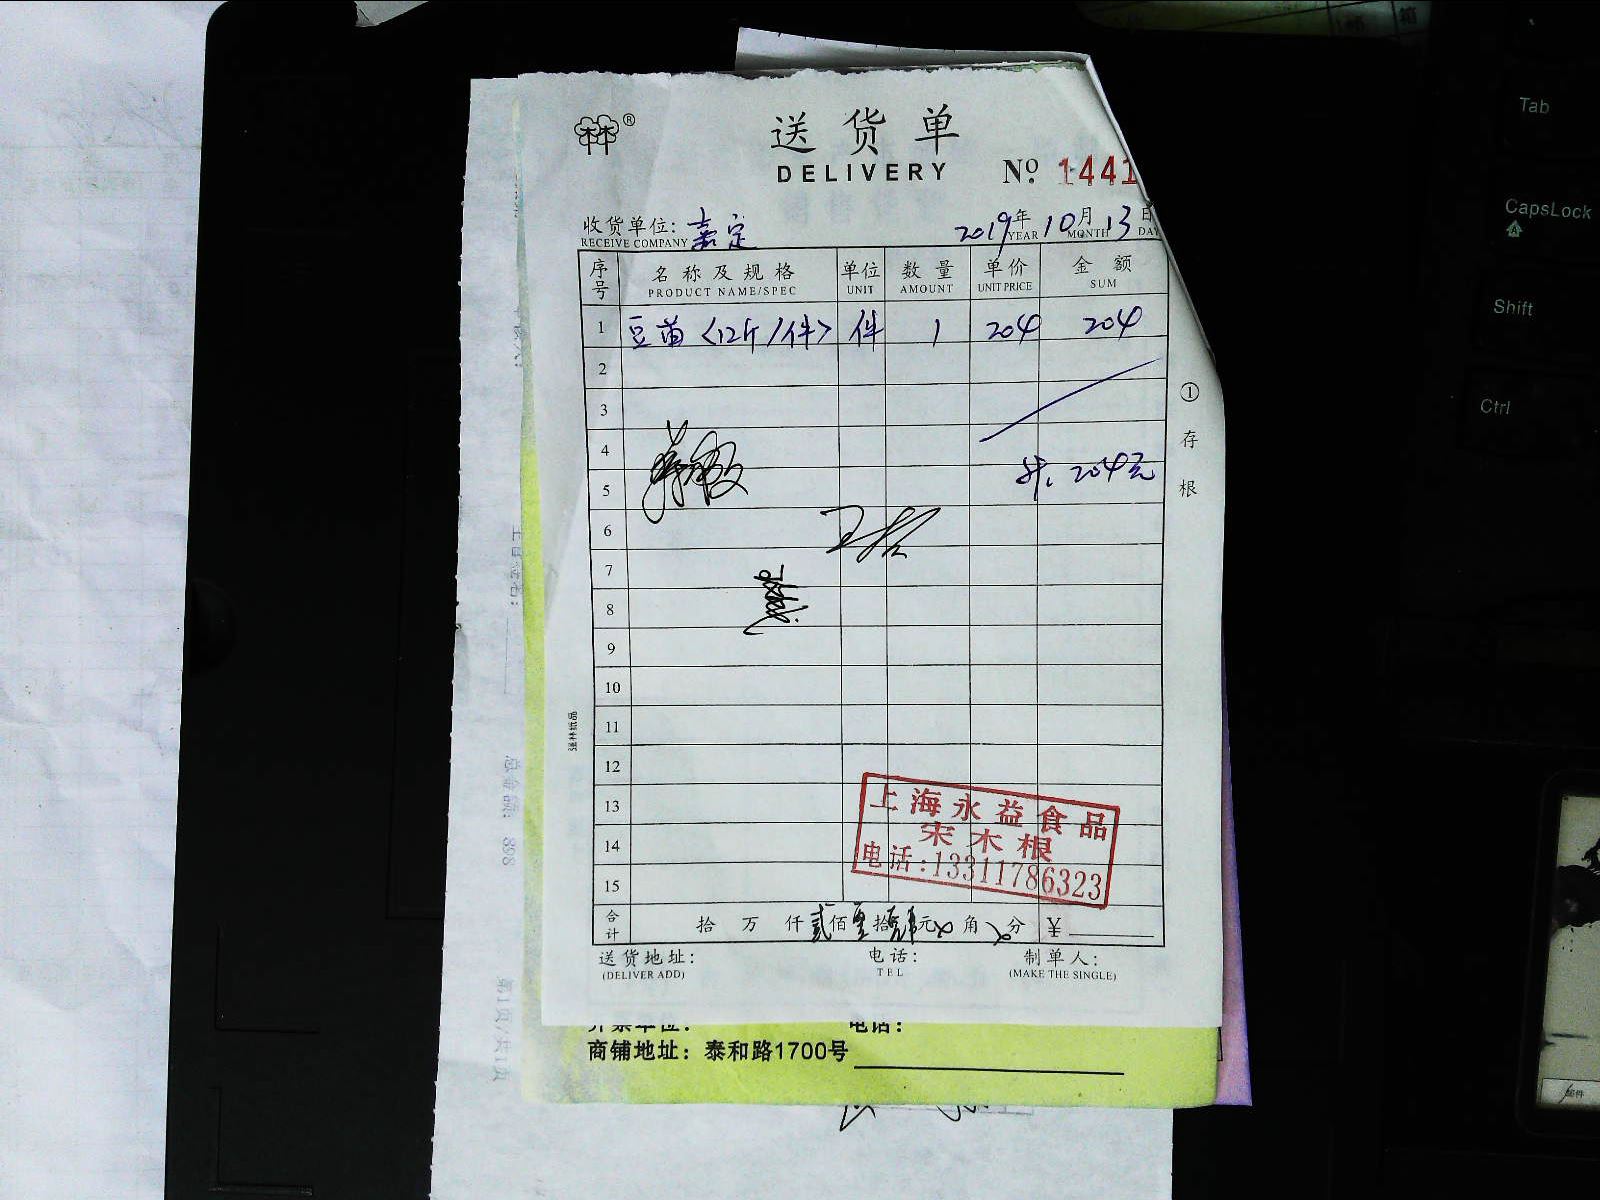 送货单
DELIVERY
№ 1441
收货单位: 嘉定 2019年10月13日
RECEIVE COMPANY YEAR MONTH DAY
序号 名称及规格 单位 数量 单价 金额
PRODUCT NAME/SPEC UNIT AMOUNT UNIT PRICE SUM
1 豆苗<12斤/件> 件 1 204 204
2
3
4
5 共: 204元
6
7
8
9
10
11
12
13
14
15
①存根
强林纸品
上海永益食品
宋木根
电话:13311786323
合计 拾 万 仟 贰佰 拾 元 角 分 ¥
送货地址: 电话: 制单人:
(DELIVER ADD) TEL (MAKE THE SINGLE)
开票单位: 电话:
商铺地址: 泰和路1700号
总金额: 898
第1页/共1页
Tab
CapsLock
Shift
Ctrl